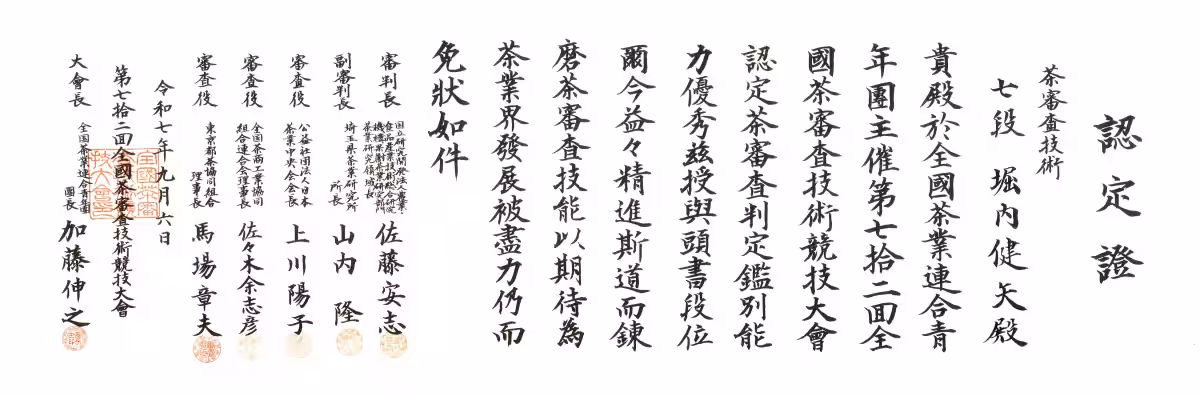 認定證
茶審査技術
七段 堀内健矢殿
貴殿於全國茶業連合青
年團主催第七拾二回全
國茶審査技術競技大會
認定茶審査判定鑑別能
力優秀茲授與頭書段位
爾今益々精進斯道而錬
磨茶審査技能以期待為
茶業界發展被盡力仍而
免狀如件
審判長 国立研究開発法人農業・食品産業技術総合研究機構果樹茶業研究部門茶業研究領域長 佐藤安志
副審判長 埼玉県茶業研究所所長 山内隆
審査役 公益社団法人日本茶業中央会会長 上川陽子
審査役 全国茶商工業協同組合連合会理事長 佐々木余志彦
審査役 東京都茶協同組合理事長 馬場章夫
令和七年九月六日
第七拾二回全國茶審査技術競技大會
大會長 全国茶業連合青年團團長 加藤伸之